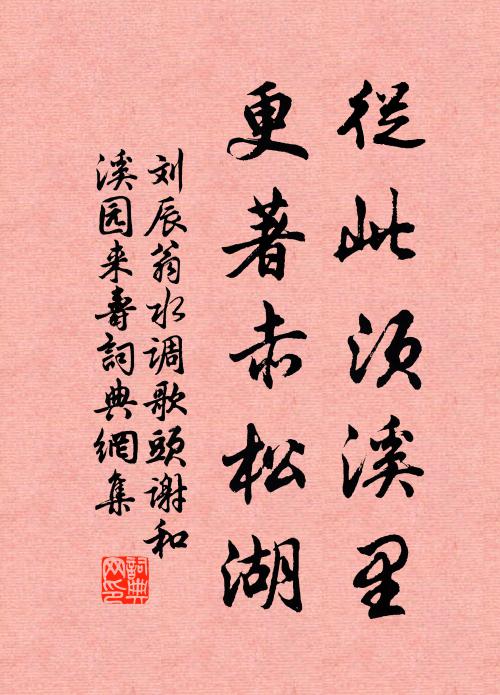 從此须溪里
更著赤松湖
刘辰翁水调歌頭谢和
溪园来壽詞典網集
詞典
网印